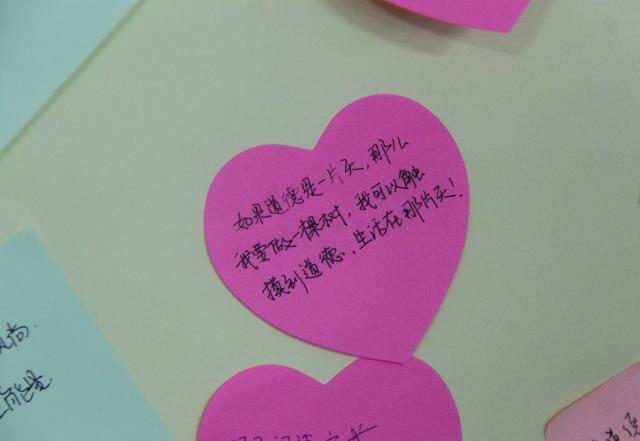 如果道德是一片天，那么
我要做一棵树，我可以触
摸到道德，生活在那片天！